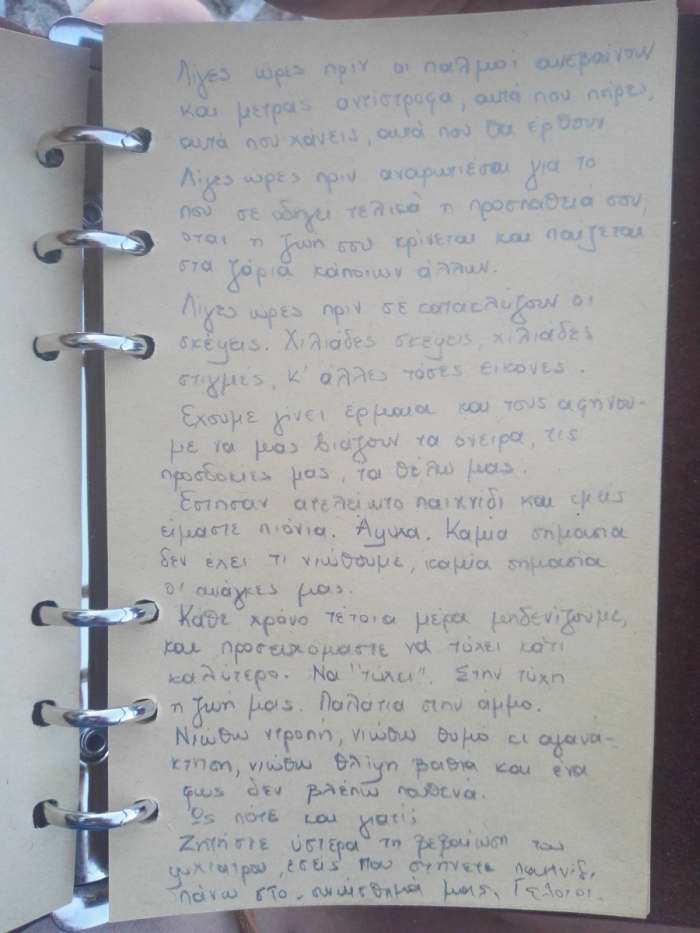 Λίγες ώρες πριν οι παλμοί ανεβαίνουν
και μετράς αντίστροφα, αυτά που πήρες,
αυτά που χάνεις, αυτά που θα έρθουν
Λίγες ώρες πριν αναρωτιέσαι για το
που σε οδηγεί τελικά η προσπάθειά σου,
όταν η ζωή σου κρίνεται και παίζεται
στα ζάρια κάποιων άλλων.
Λίγες ώρες πριν σε κατακλύζουν οι
σκέψεις. Χιλιάδες σκέψεις, χιλιάδες
στιγμές, κ' άλλες τόσες εικόνες.
Έχουμε γίνει έρμαια και τους αφήνου-
με να μας βιάζουν τα όνειρα, τις
προσδοκίες μας, τα θέλω μας.
Έστησαν ατελείωτο παιχνίδι και εμείς
είμαστε πιόνια. Άψυχα. Καμία σημασία
δεν έχει τι νιώθουμε, καμία σημασία
οι ανάγκες μας.
Κάθε χρόνο τέτοια μέρα μηδενίζουμε,
και προσευχόμαστε να τύχει κάτι
καλύτερο. Να "τύχει". Στην τύχη
η ζωή μας. Παλάτια στην άμμο.
Νιώθω ντροπή, νιώθω θυμό κι αγανά-
κτηση, νιώθω θλίψη βαθιά και ένα
φως δεν βλέπω πουθενά.
Ως πότε και γιατί;
Ζητήστε ύστερα τη βεβαίωση του
ψυχιάτρου, εσείς που στήνετε παιχνίδι
πάνω στο συναίσθημά μας. Γελοίοι.